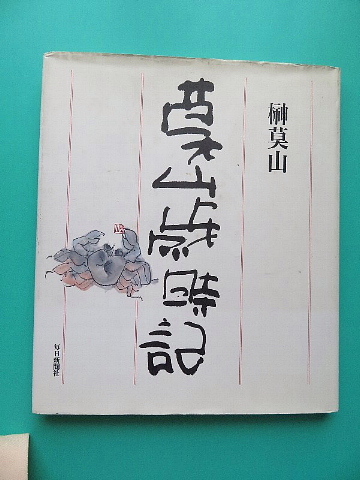 榊莫山
莫山歳時記
毎日新聞社